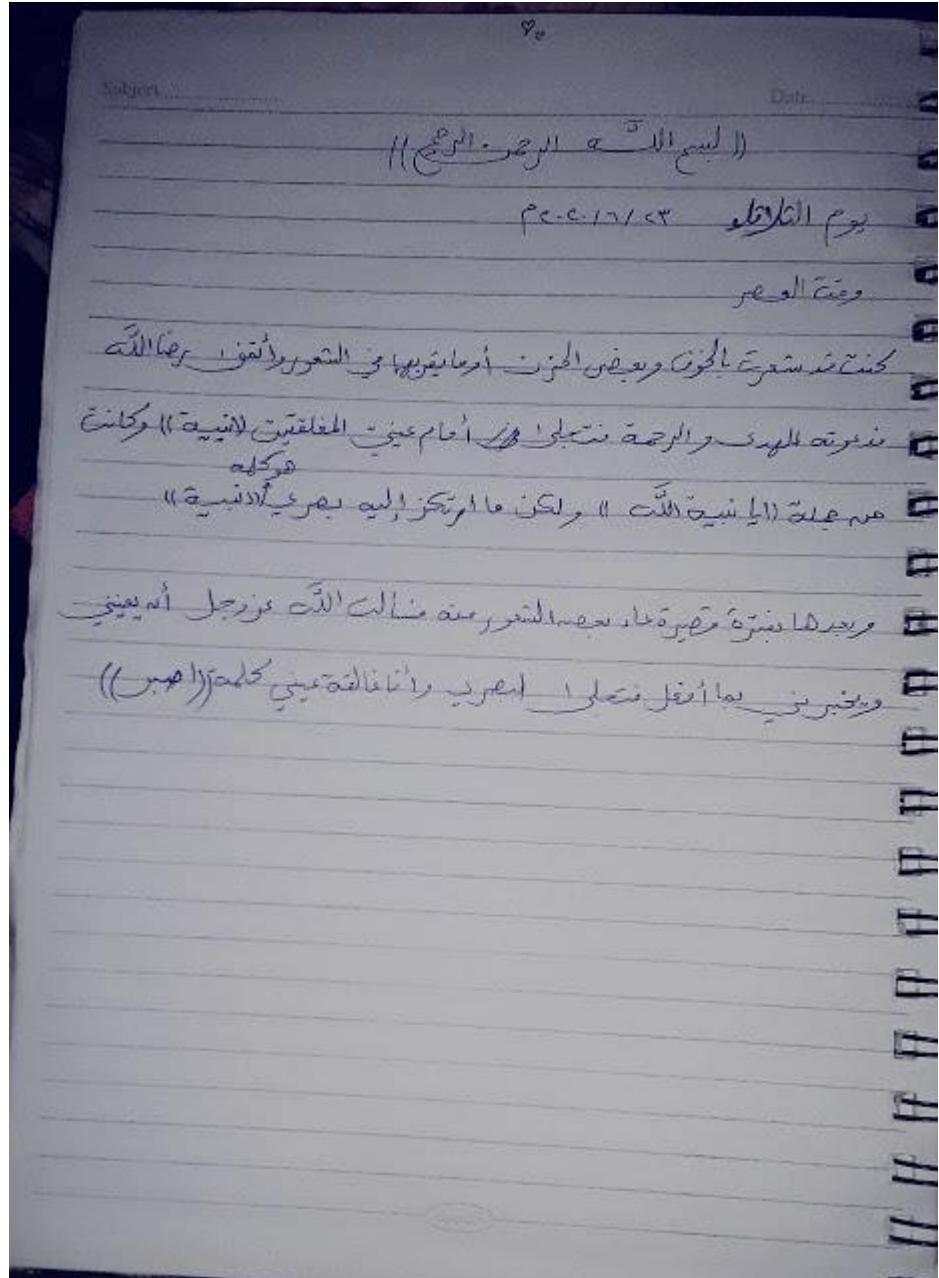 Subject
Date
((بسم اللّه الرحمن الرحيم))
يوم الثلاثاء ٢٣/٦/٢٠٢٠م
وقت العصر
كنت قد شعرت بالخوف وبعض الحزن أو ما يقربها في الشعور وأتقفى رضا اللّه
فدعوته للهدى والرحمة فتجلى أمام عيني المغلقتين ((نبية)) وكانت
من جملة ((يا نبية اللّه)) ولكن ما ارتكز إليه بصري هو كلمة ((نبية))
وبعدها بفترة قصيرة عاد بعض الشعور منه فسألت اللّه عز وجل أن يعينني
ويخبرني بما أفعل فتجلى لبصري وأنا غالقة عيني كلمة ((اصبر))